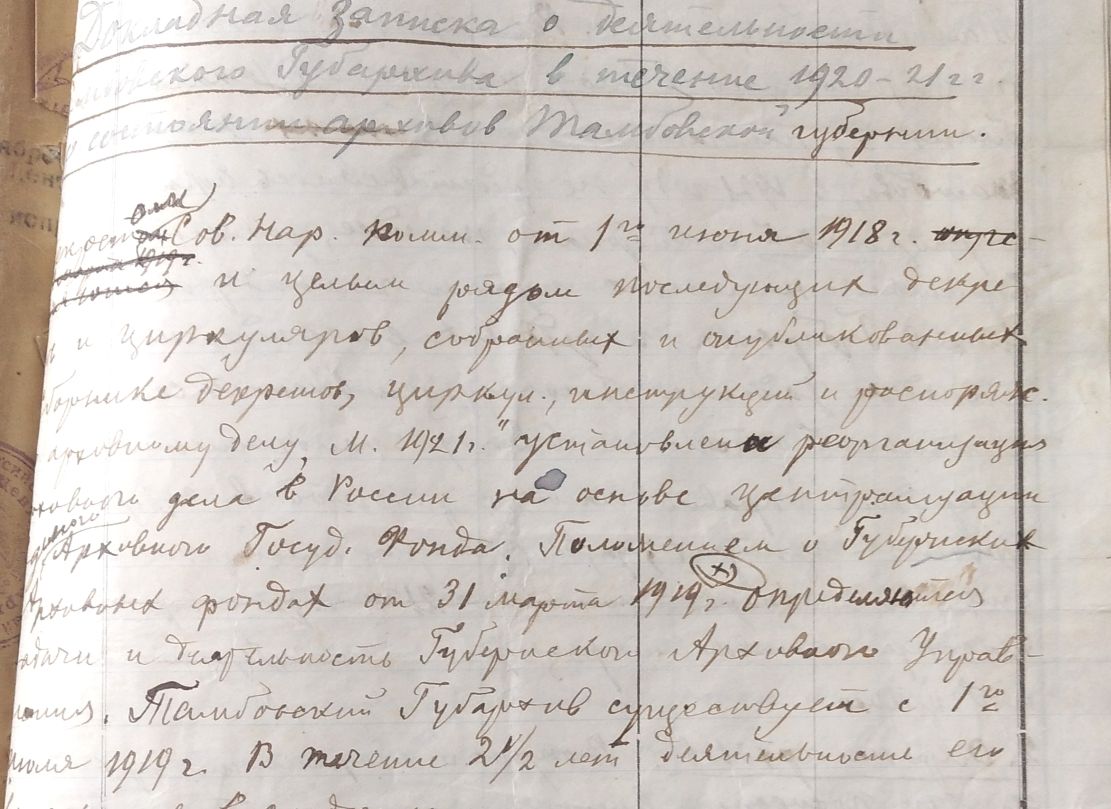 Докладная Записка о деятельности
Губархива в течение 1920–21 гг.
состоянии архивов Тамбовской губернии.
Сов. Нар. Комм. от 1го июня 1918 г.
и целым рядом последующих декре
и циркуляров, собранных и опубликованных
борнике декретов, циркул., инструкций и распоряж.
архивному делу, М. 1921 г." установлена реорганизация
хивного дела в России на основе централизации
Архивного Госуд. Фонда. Положением о Губернских
Архивных фондах от 31 марта 1919 г. определяются
адачи и деятельность Губернского Архивного Управ-
ления. Тамбовский Губархив существует с 1го
июля 1919 г. В течение 2 1/2 лет деятельности его